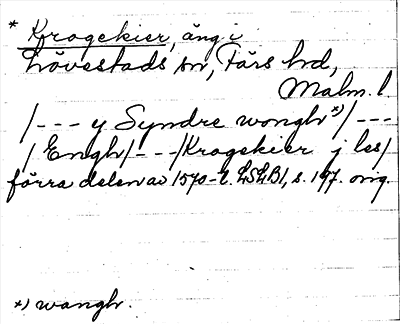 * Krogekier, äng i
Lövestads sn, Färs hd,
Malm. l
/--- y Syndre wongh *)/---
/ Engh/---/Krogekier j les/
förra delen av 1570-t. LSLB1, s. 197. orig.
*) wangh.